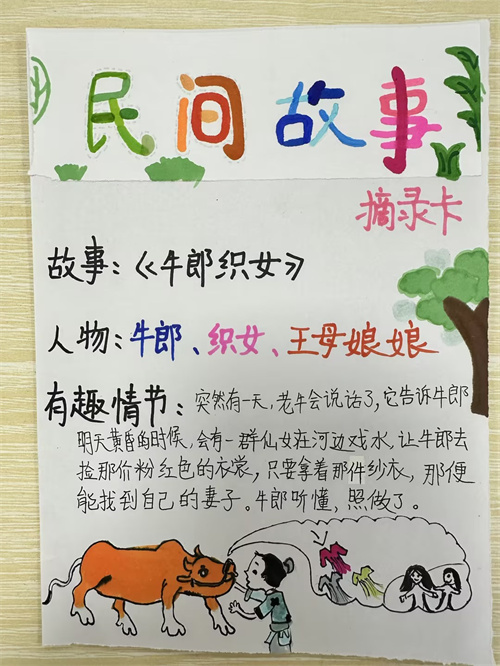 民间故事
摘录卡
故事:《牛郎织女》
人物:牛郎、织女、王母娘娘
有趣情节:突然有一天,老牛会说话了,它告诉牛郎
明天黄昏的时候,会有一群仙女在河边戏水,让牛郎去
捡那价粉红色的衣裳,只要拿着那件纱衣,那便
能找到自己的妻子。牛郎听懂,照做了。